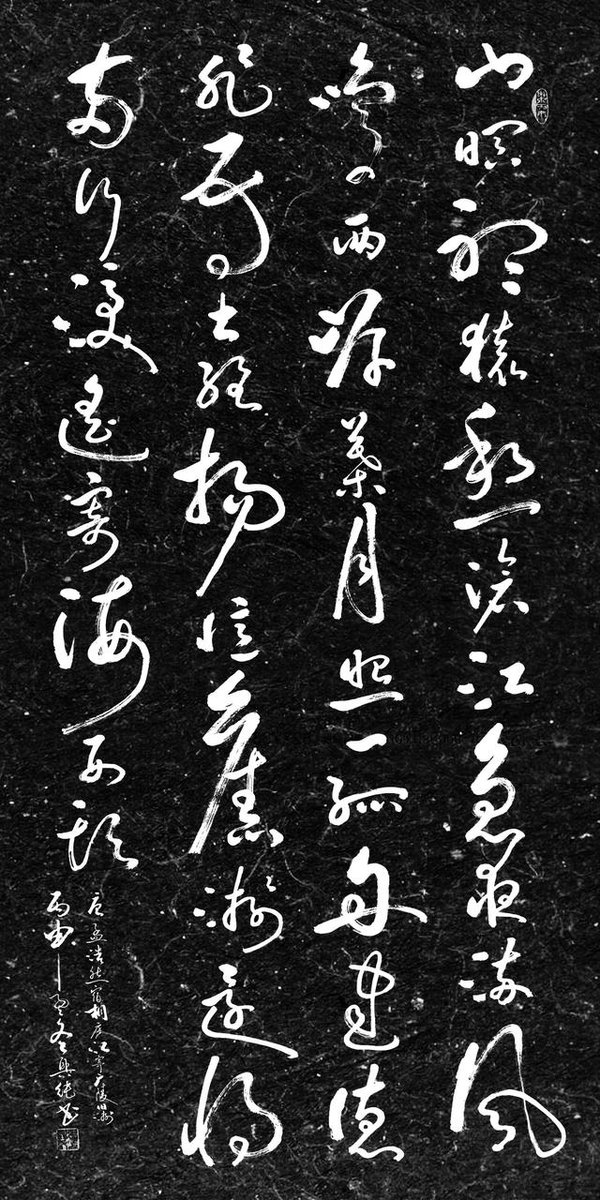 山暝聽猿愁滄江急夜流風
鳴兩岸葉月照一孤舟建德
非吾土維揚憶舊游還將
兩行淚遙寄海西頭
唐孟浩然宿桐廬江寄廣陵舊游
丙申年孟冬興純書